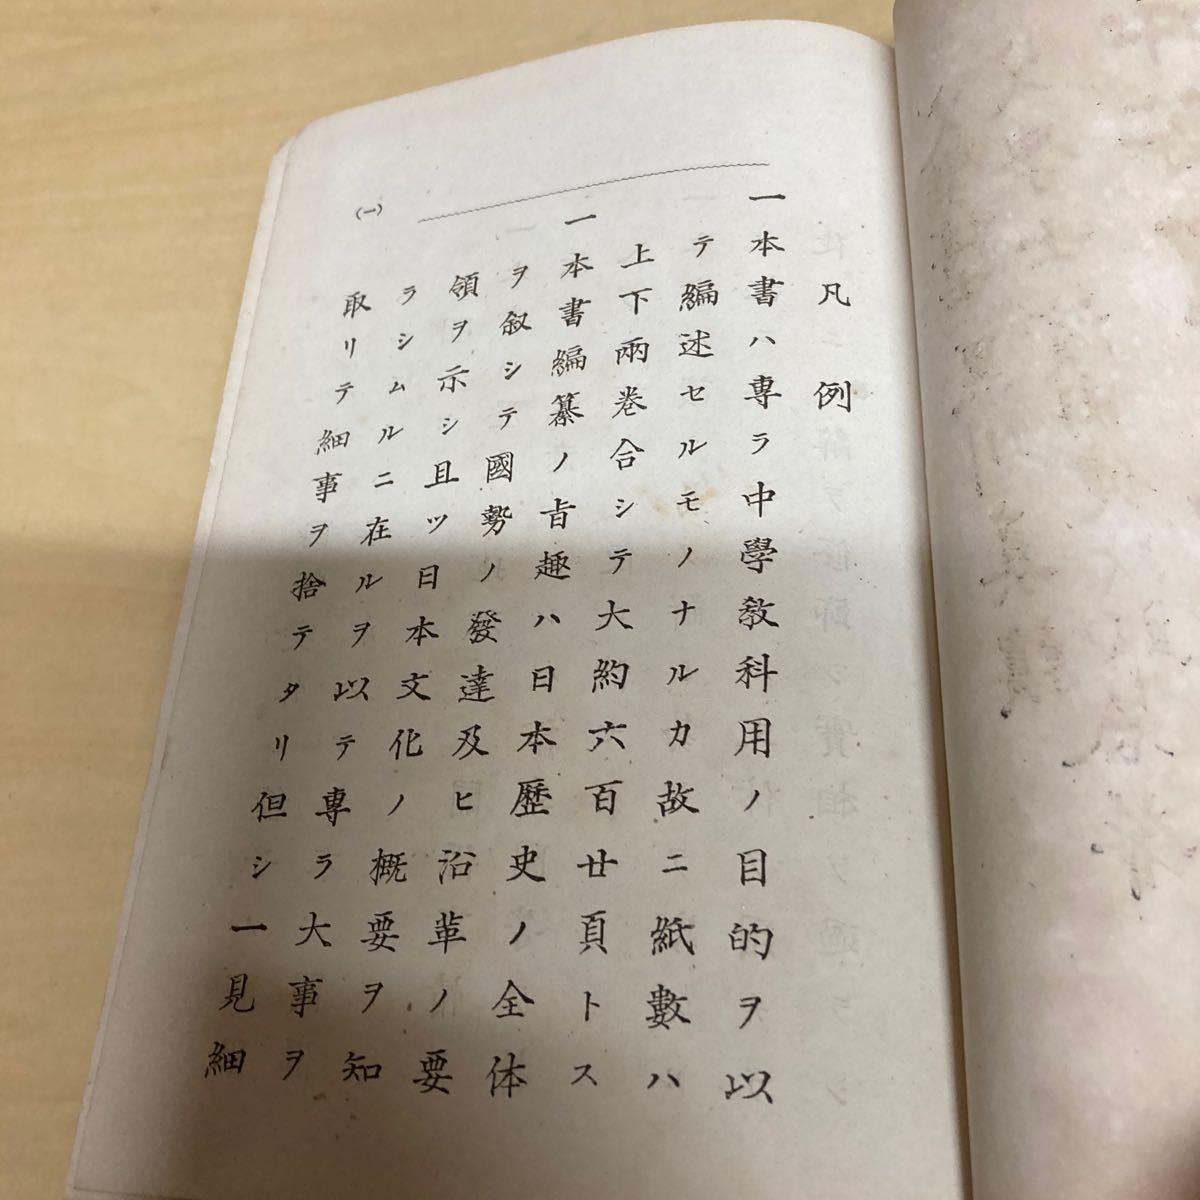 凡例
一本書ハ專ラ中學敎科用ノ目的ヲ以
テ編述セルモノナルカ故ニ紙數ハ
上下兩卷合シテ大約六百廿頁トス
一本書編纂ノ旨趣ハ日本歷史ノ全体
ヲ叙シテ國勢ノ發達及ヒ沿革ノ要
領ヲ示シ且ツ日本文化ノ概要ヲ知
ラシムルニ在ルヲ以テ專ラ大事ヲ
取リテ細事ヲ捨テタリ但シ一見細
(一)